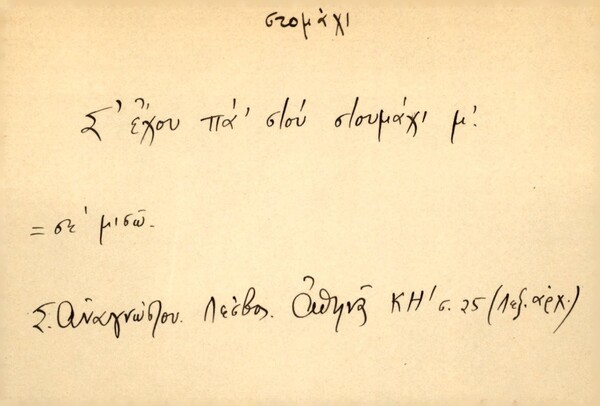 στομάχι
Σ' ἔχου πά' στού στουμάχι μ'.
= σε' μισῶ.
Σ. Ἀναγνώστου. Λέσβος. Ἀθηνᾶ ΚΗ' σ. 25 (Λεξ. ἀρχ.)